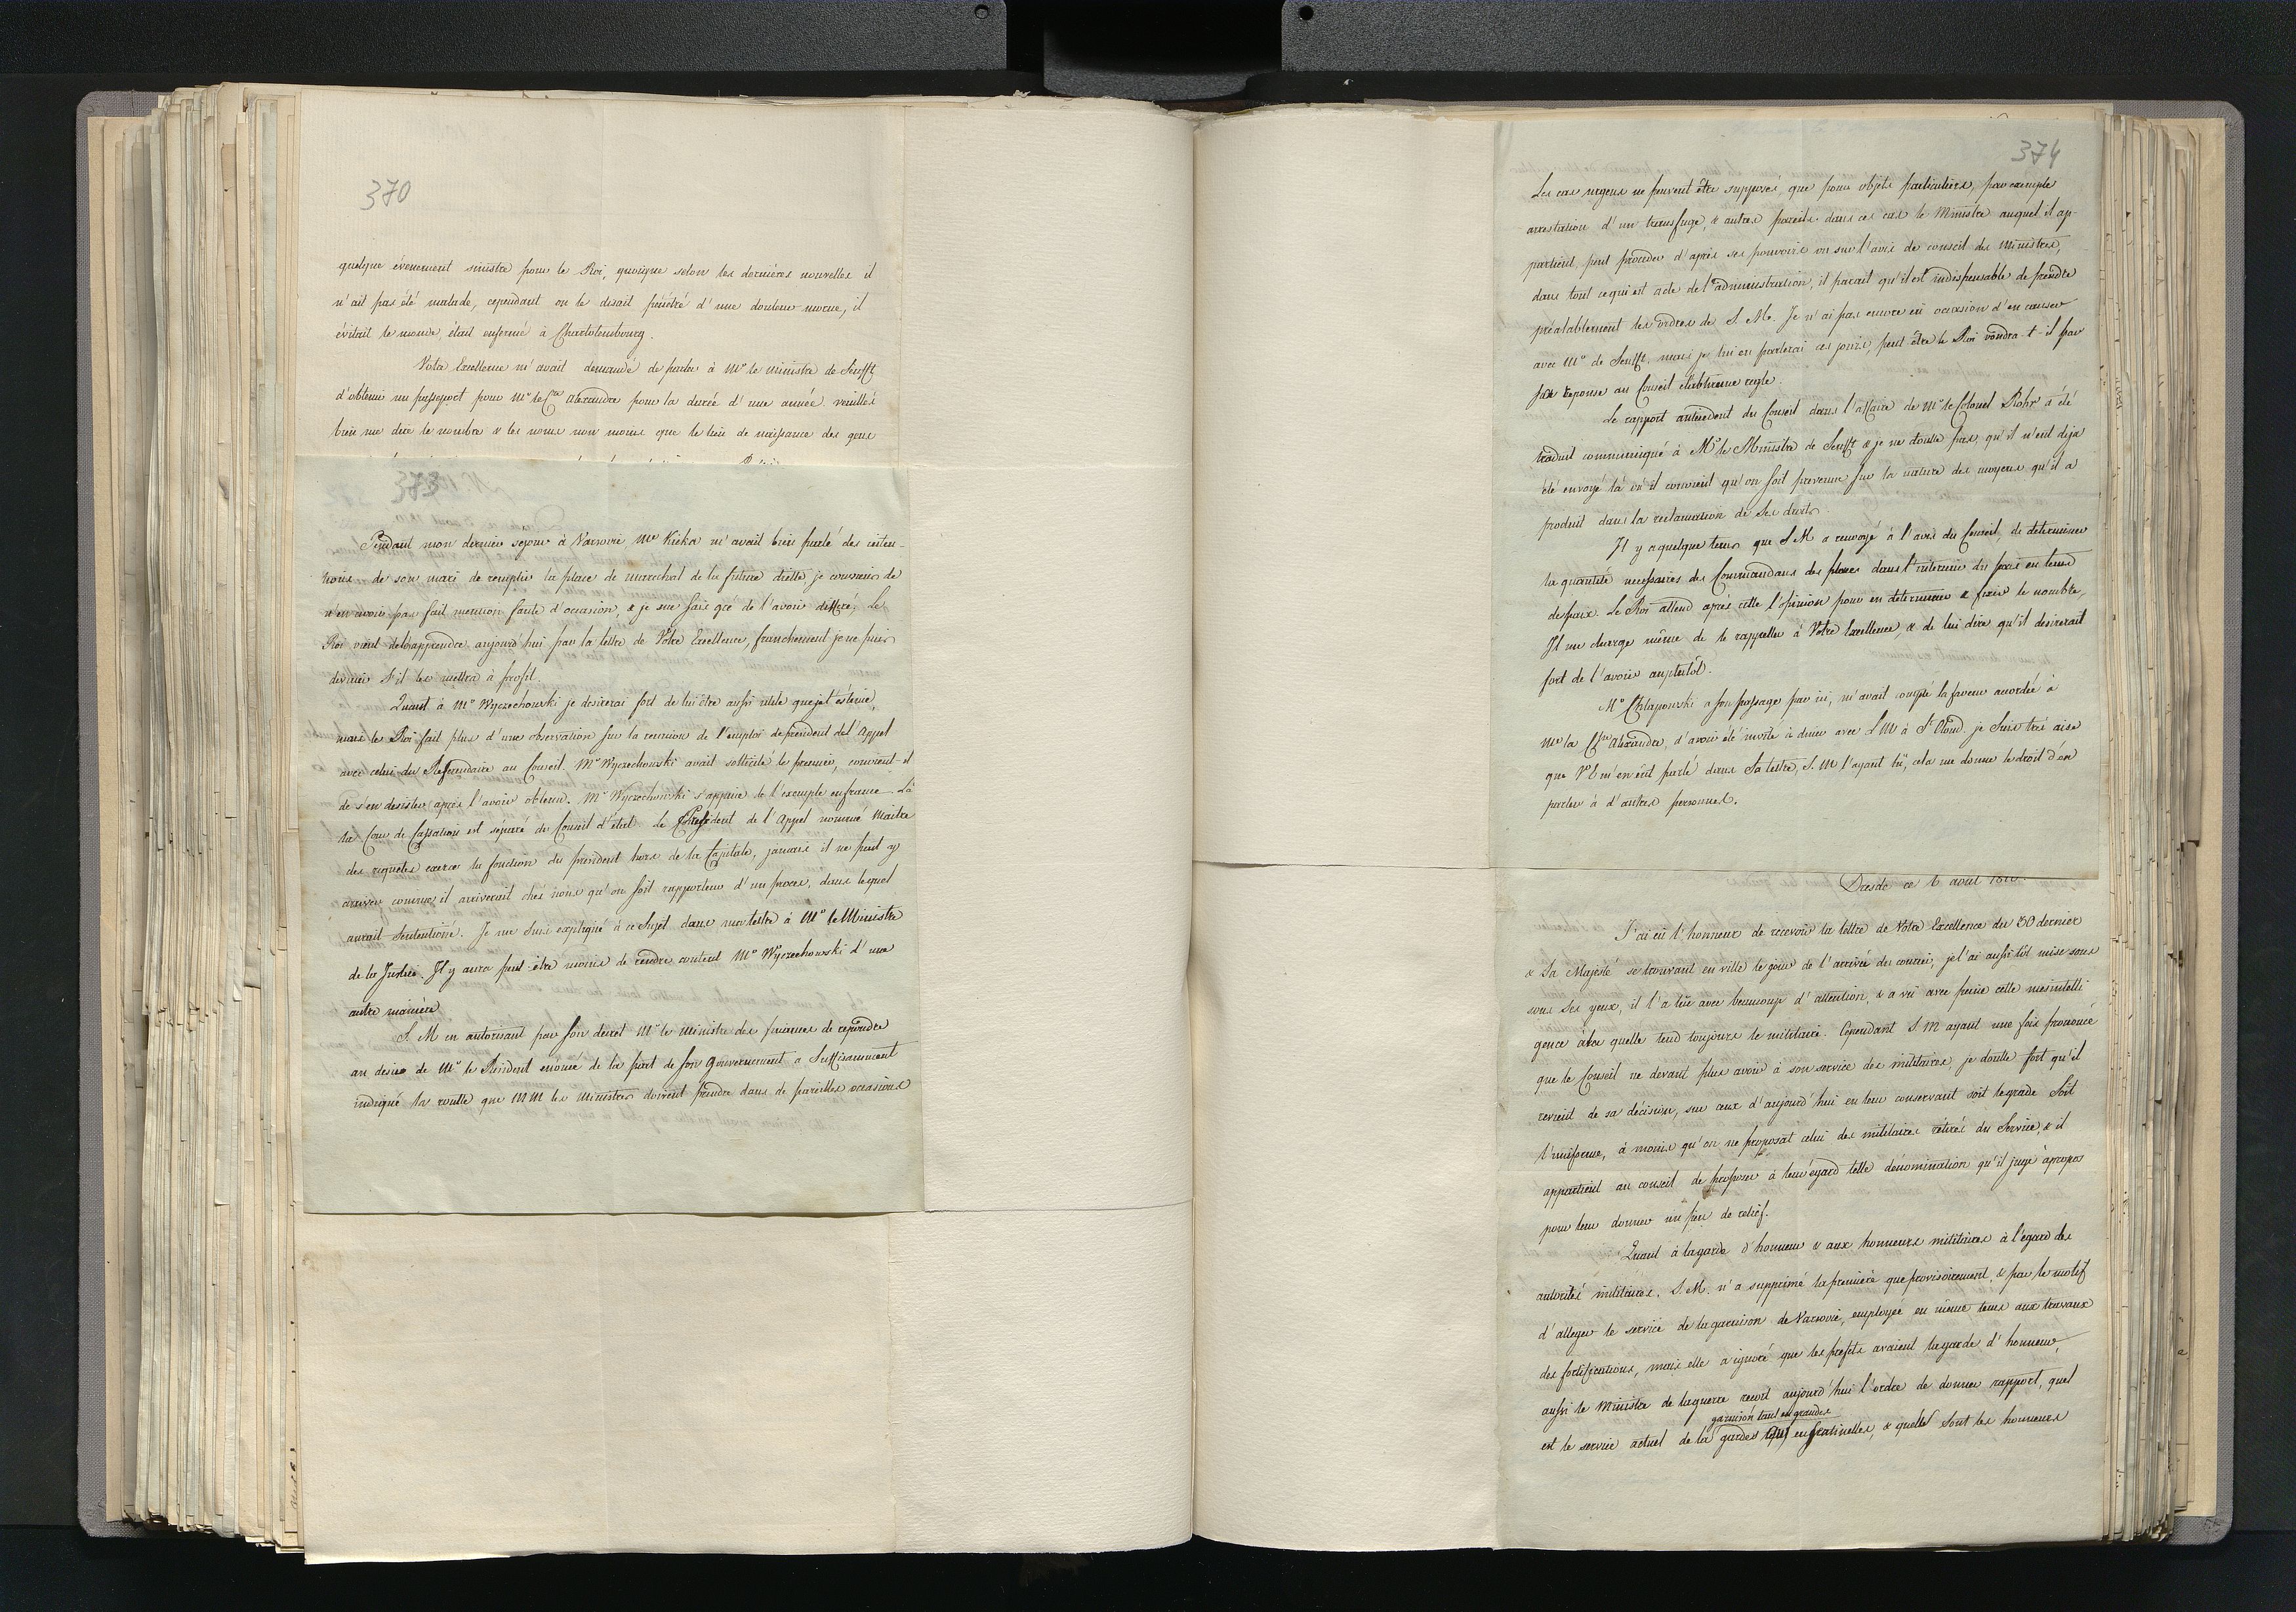 370
quelque évenement sinistre pour le Roi, quoique selon les dernières nouvelles il
n'ait pas été malade, cependant on le disait pénétré d'une douleur morne, il
évitait le monde, était enfermé à Charlottenbourg.
Votre Excellence m'avait demandé de parler à Mr le ministre de Senfft
d'obtenir un passeport pour Mr le Cte Alexandre pour la durée d'une année. veuillés
bien me dire le nombre & les noms non moins que le lieu de naissance des gens
373
Pendant mon dernier séjour à Varsovie Me Kicka m'avait bien parlé des inten-
tions de son mari de remplir la place de marechal de la future diette, je conviens de
n'en avoir pas fait mention faute d'occasion, & je me sais gré de l'avoir différé. Le
Roi vient de l'apprendre aujourd'hui par la lettre de Votre Excellence, franchement je ne puis
deviner s'il les mettra à profit.
Quant à Mr Wyczechowski je desirerai fort de lui être aussi utile que je l'estime,
mais le Roi fait plus d'une observation sur la reunion de l'emploi de président de l'Appel
avec celui du Referendaire au Conseil. Mr Wyczechowski avait sollicité le premier, convient-il
de s'en desister après l'avoir obtenu. Mr Wyczechowski s'appuie de l'exemple en france. Là
la Cour de Cassation est séparé du Conseil d'état. le Président de l'Appel nommé Maitre
des requetes exerce la fonction du président hors de la Capitale, jamais il ne peut y
arriver comme il arriverait chés nous qu'on soit rapporteur d'un procès, dans lequel
aurait sententioné. Je me suis expliqué à ce sujet dans ma lettre à Mr le Ministre
de la Justice. Il y aura peut-être moiens de rendre content Mr Wyczechowski d'une
autre manière
S. M en autorisant par son decret Mr le ministre des finances de repondre
au desir de Mr le Resident enoncé de la part de son gouvernement a suffisamment
indiqué la routte que MM les ministres doivent prendre dans de pareilles occasions
374
Les cas urgens ne peuvent être supposés que pour objets particuliers, par exemple
arrestation d'un transfuge, & autres pareils. dans ces cas le Ministre auquel il ap-
partient, peut proceder d'après ses pouvoirs ou sur l'avis de conseil des ministres,
dans tout ce qui est acte de l'administration, il parait qu'il est indispensable de prendre
préalablement les ordres de S. M. Je n'ai pas encore eu occasion d'en causer
avec Mr de Senfft, mais je lui en parlerai ces jours, peut être le Roi voudra-t-il par
sa reponse au Conseil établir une regle.
Le rapport antecedent du Conseil dans l'affaire de Mr le Colonel Rohr a été
traduit communiqué à Mr le Ministre de Senfft & je ne doutte pas, qu'il n'eut deja
été envoyé là où il convient qu'on soit prevenu sur la nature des moyens qu'il a
produit dans la reclamation de ses droits.
Il y a quelque tems que S M a renvoyé à l'avis du Conseil, de determiner
la quantité necessaires des Commandans des places dans l'interieur du pais en tems
de paix. Le Roi attend après cette l'opinion pour en determiner & fixer le nombre,
Il me charge même de le rappeller à Votre Excellence, & de lui dire qu'il desirerait
fort de l'avoir au plutôt.
Mr Chlapowski a son passage par ici, m'avait conté la faveur accordée à
Me la Ctsse Alexandre, d'avoir été invité à diner avec L M à St Cloud. je suis très aise
que V E m'en eut parlé dans sa lettre, S. M l'ayant lû, cela me donne le droit d'en
parler à d'autres personnes.
Dresde ce 6 août 1810
J'ai eu l'honneur de recevoir la lettre de Votre Excellence du 30 dernier
& Sa Majesté se trouvant en ville le jour de l'arrivée du courrier, je l'ai aussitôt mise sous
sous ses yeux, il l'a lûe avec beaucoup d'attention, & a vû avec peine cette mesintelli
gence à la quelle tend toujours le militaire. Cependant S M ayant une fois prononcé
que le Conseil ne devant plus avoir à son service des militaires, je doutte fort qu'il
revient de sa décision, sur ceux d'aujourd'hui en leur conservant soit le grade soit
l'uniforme, à moins qu'on ne proposat celui des militaires retirés du Service, & il
appartient au conseil de proposer à leur égard telle dénomination qu'il juge àpropos
pour leur donner un peu de relief.
Quant à la garde d'honneur & aux honneurs militaires à l'égard des
autorités militaires. S. M. n'a supprimé la première que provisoirement, & par le motif
d'alleger le service de la garnison de Varsovie, employée en même tems aux travaux
des fortifications, mais elle a ignoré que les prefets avaient la garde d'honneur,
aussi le Ministre de la guerre recoit aujourd'hui l'ordre de donner rapport, quel
garnison tant en grandes
est le service actuel de la gardes qu'en sentinelles, & quelles sont les honneurs